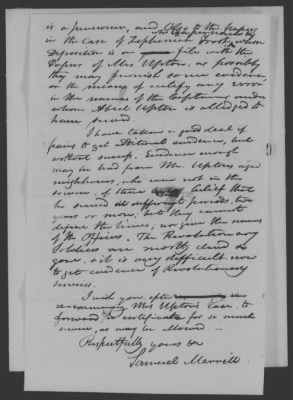 is a pensioner, and Also to the papers
in the case of Zephaniah Frost, whose
Deposition is on file with the
Papers of Mrs Upton, as possibly
they may furnish some evidence
or the means of rectify any error
in the names of the Captains under
whom Abiel Upton is alledged to
have served.
I have taken a good deal of
pains to get aditional evidence, but
without success. Evidence enough
may be had from Mr. Upton's aged
neighbours, who were not in the
service, of there belief that
he served at different periods, two
years or more; but they cannot
define the times, nor give the names
of the Officers. The Revolutionary
Soldiers are mostly dead or
gone, & it is very difficult now
to get evidence of Revolutionary
services.
I wish you, after
re-examining Mrs Upton's Case to
forward a certificate for so much
service, as may be allowed
Respectfully yours &c
Samuel Merrill.